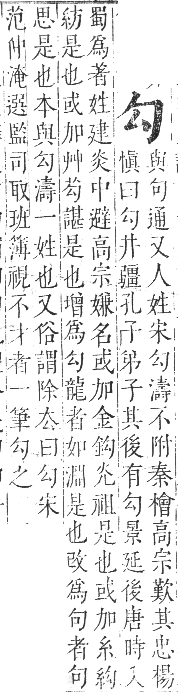 勾
與句通又人姓宋勾濤不附秦檜高宗歎其忠楊
愼曰勾井疆孔子弟子其後有勾景延後唐時入
蜀爲著姓建炎中避高宗嫌名或加金鈎光祖是也或加糸約
紡是也或加艸芶諶是也增爲勾龍者如淵是也攺爲句者句
思是也本與勾濤一姓也又俗謂除去曰勾宋
范仲淹選監司取班簿視不才者一筆勾之